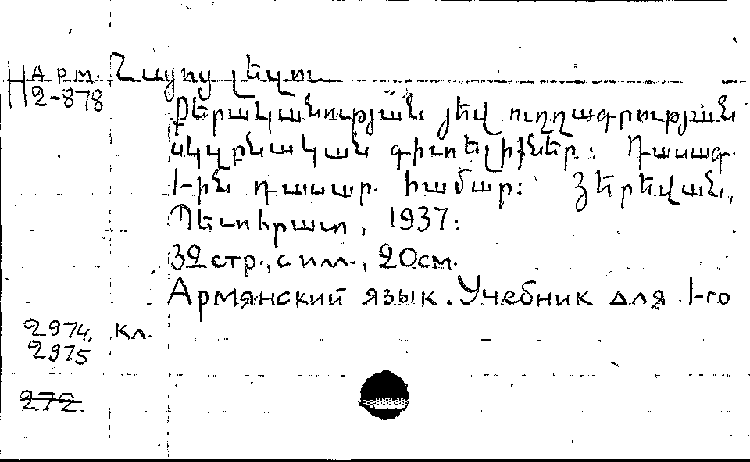 Н арм. Հայոց լեզու
2-878
Քերականության յեվ ուղղագրության
սկզբնական գիտելիքներ: Դասագ.
1-ին դասար. համար: Յերեվան,
Պետհրատ, 1937:
32 стр., с илл., 20 см.
Армянский язык. Учебник для 1-го
2974, кл.
2975
272.